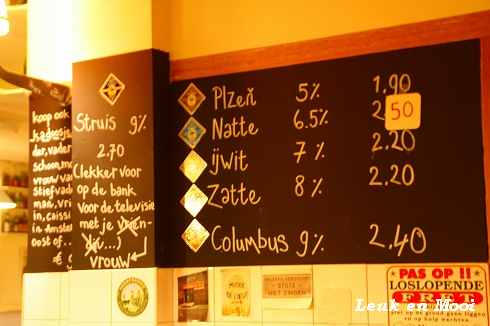 koop ook
kadoosje
der, vader
schoon, moe
vrouw, va
stiefvad
man, vri
in, caissi
in Amster
oost of...
Struis 9%
2.70
Clekker voor
op de bank
voor de televisie
met je vrien-
din...)
vrouw
Plzeň 5% 1.90
Natte 6.5% 2. 50
ijwit 7% 2.20
Zatte 8% 2.20
Columbus 9% 2.40
PAS OP!!
LOSLOPENDE
FRET
op de grond geen liggen
Leuk en Mooi